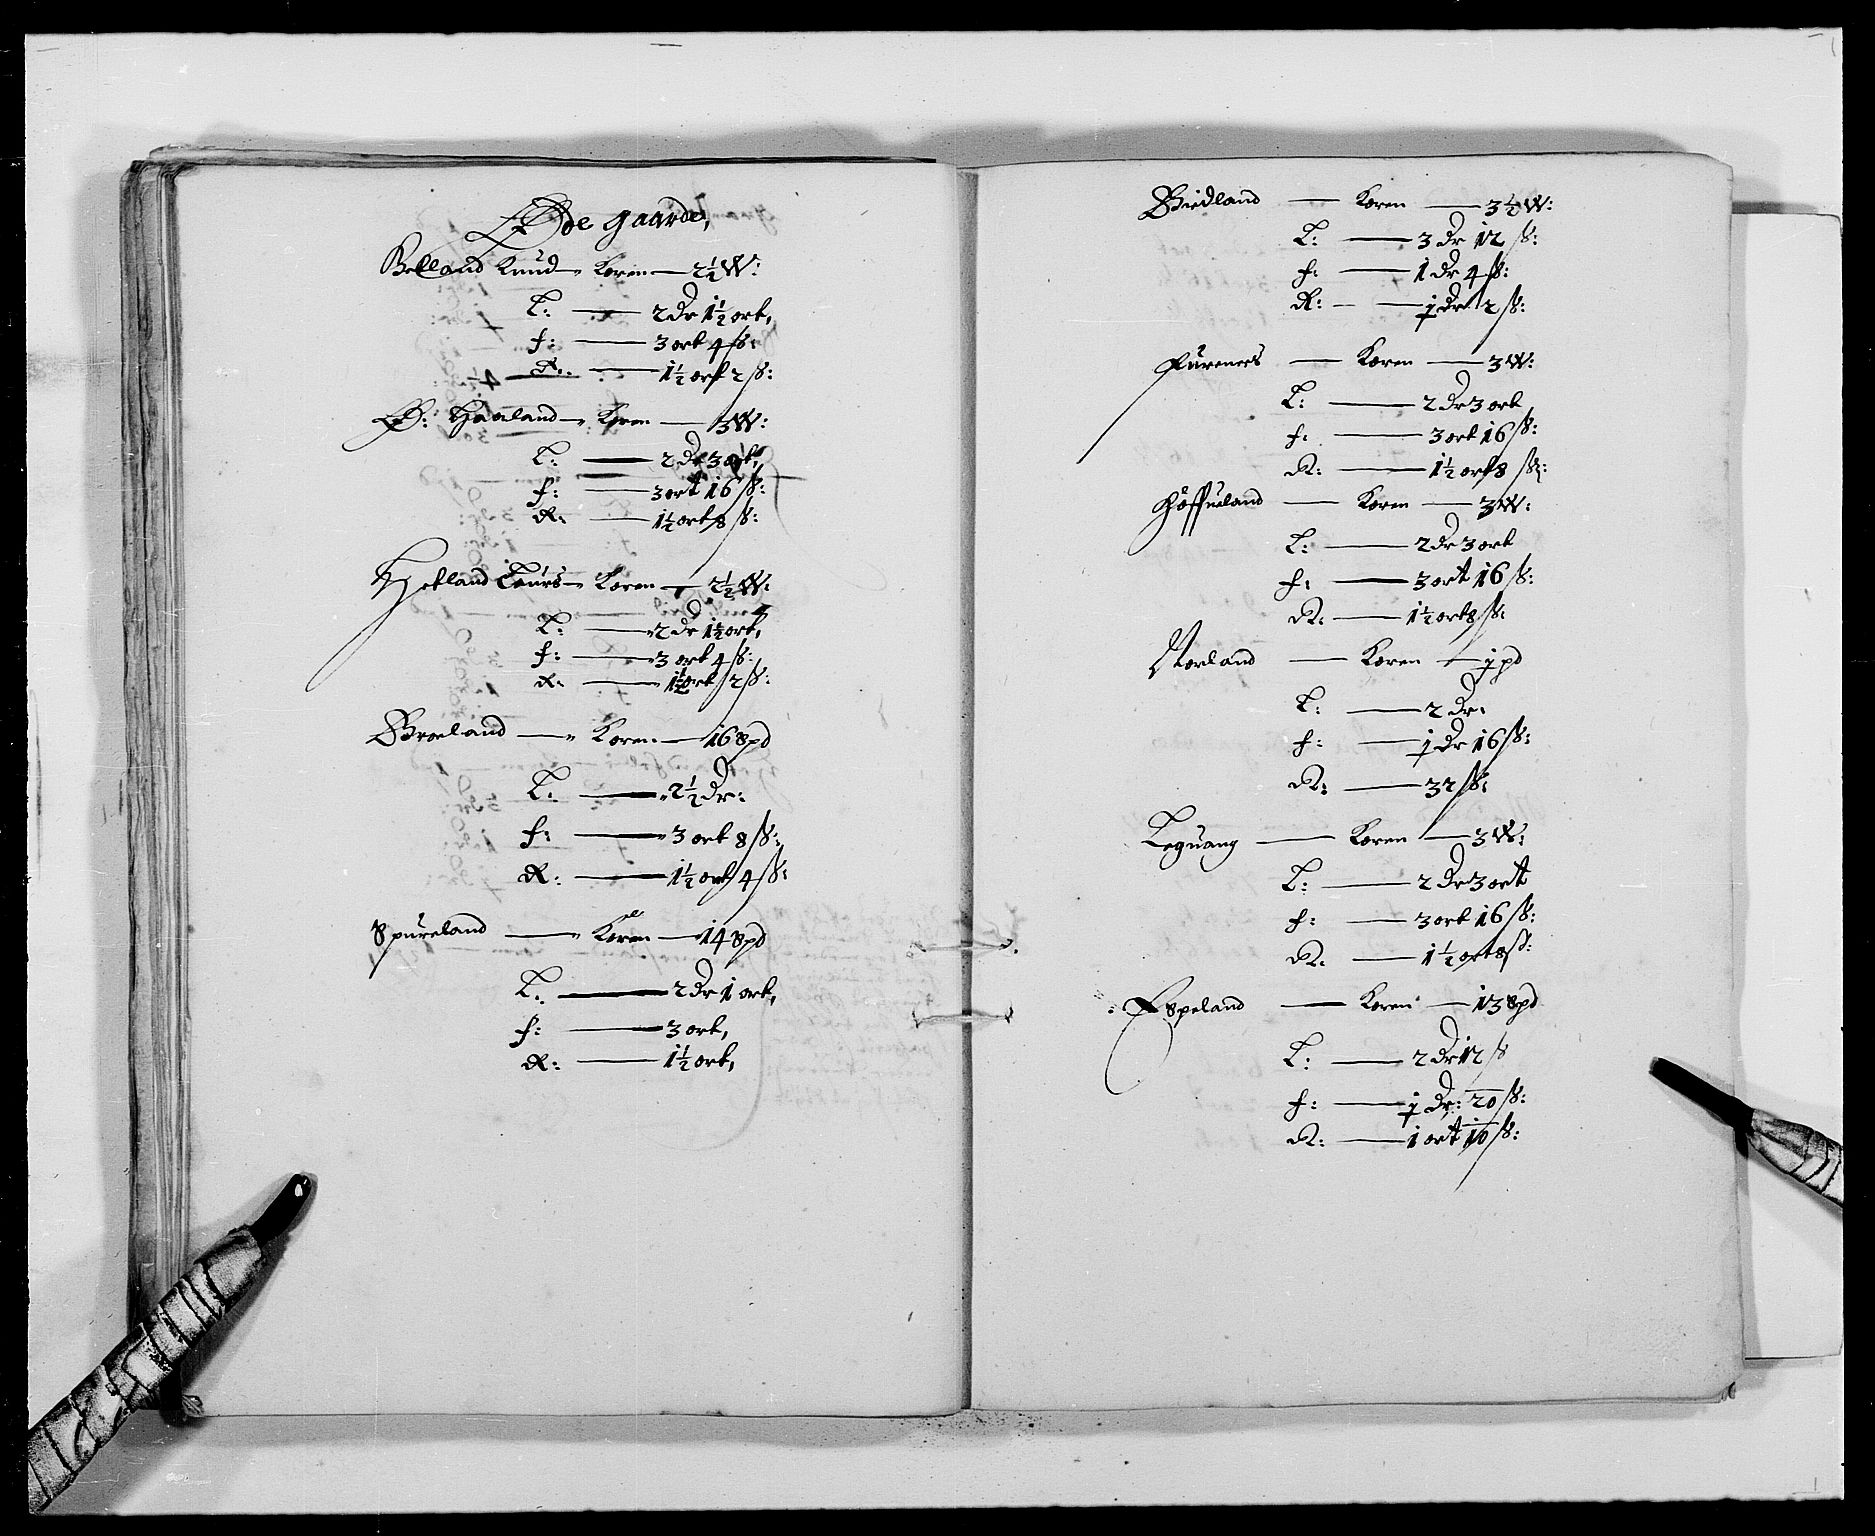 Øde gaarde,
Belland Knud — Koren — 2½ W:
L: — 2 dr 1½ ort,
f: — 3 ort 4 ß:
R: — 1½ ort 2 ß:
Ø: Haaland — Koren — 3 W:
L: — 2 dr 3 ort,
f: — 3 ort 16 ß:
R: — 1½ ort 8 ß:
Hetland Laurs — Koren — 2½ W:
L: — 2 dr 1½ ort,
f: — 3 ort 4 ß:
R: — 1½ ort 2 ß:
Broeland — Koren — 16 spd
L: — 2½ dr:
f: — 3 ort 8 ß:
R: — 1½ ort 4 ß:
Spureland — Koren — 14 spd
L: — 2 dr 1 ort,
f: — 3 ort,
R: — 1½ ort,
Birdland — Koren — 3½ W:
L: — 3 dr 12 ß:
f: — 1 dr 4 ß:
R: — j dr 2 ß:
Furenees — Koren — 3 W:
L: — 2 dr 3 ort
f: — 3 ort 16 ß:
R: — 1½ ort 8 ß:
Høffueland — Koren — 3 W:
L: — 2 dr 3 ort
f: — 3 ort 16 ß:
R: — 1½ ort 8 ß:
Norland — Koren — j pd
L: — 2 dr:
f: — j dr 16 ß:
R: — 32 ß:
Leguang — Koren — 3 W:
L: — 2 dr 3 ort
f: — 3 ort 16 ß:
R: — 1½ ort 8 ß:
Espeland — Koren — 13 spd
L: — 2 dr 12 ß
f: — j dr: 20 ß:
R: — 1 ort 10 ß: